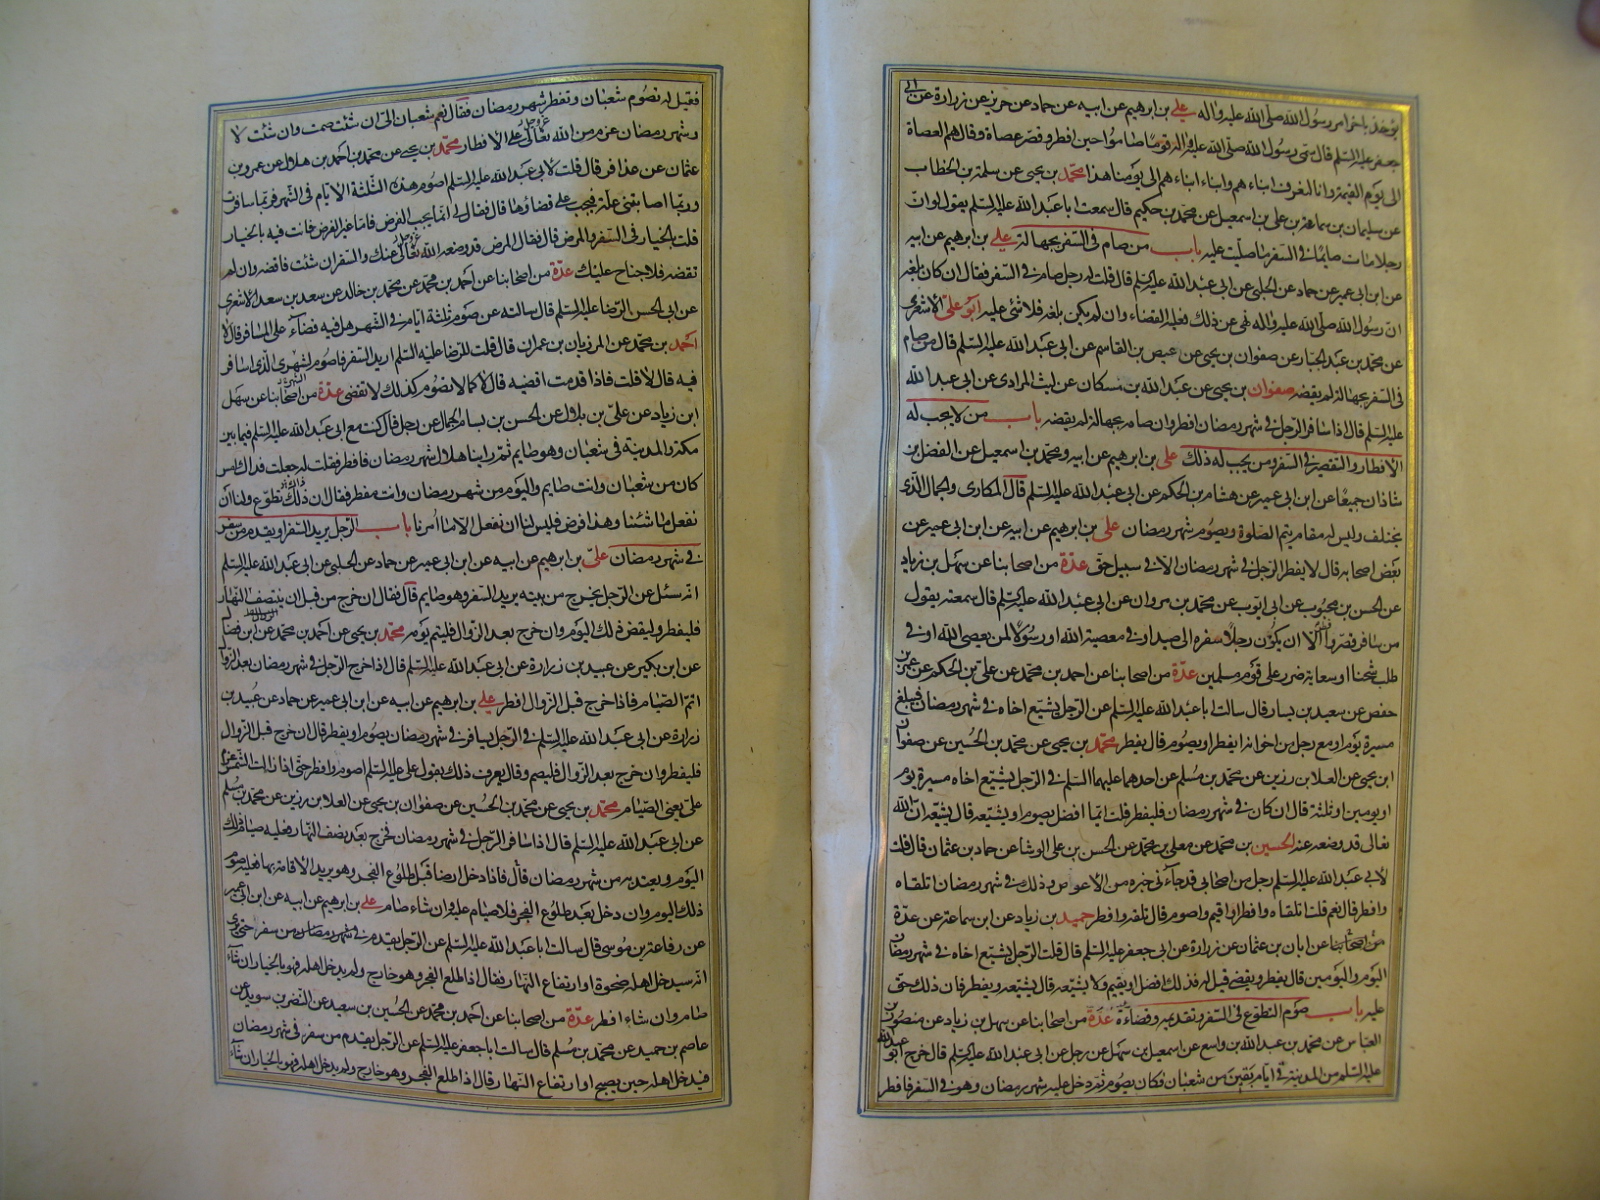 يؤخذ باخر امر رسول الله صلى الله عليه واله علي بن ابرهيم عن ابيه عن حماد عن حريز عن زرارة عن ابى
جعفر عليه السلم قال سمى رسول الله صلى الله عليه واله قوما صاموا حين افطر وقصر عصاة وقال هم العصاة
الى يوم القيمة وانا لنعرف ابناءهم وابناء ابناءهم الى يومنا هذا محمد بن يحيى عن سلمة بن الخطاب
عن سليمان بن سماعة عن على بن اسمعيل عن محمد بن حكيم قال سمعت ابا عبد الله عليه السلم يقول لو ان
رجلا مات صايما في السفر ما صليت عليه باب من صام في السفر بجهالة علي بن ابرهيم عن ابيه
عن ابن ابى عمير عن حماد عن الحلبى عن ابى عبد الله عليه السلم قال قلت له رجل صام في السفر فقال ان كان بلغه
ان رسول الله صلى الله عليه واله نهى عن ذلك فعليه القضاء وان لم يكن بلغه فلا شئ عليه ابو على الاشعرى
عن محمد بن عبد الجبار عن صفوان بن يحيى عن عيص بن القاسم عن ابى عبد الله عليه السلم قال من صام
في السفر بجهالة لم يقضه صفوان بن يحيى عن عبد الله بن مسكان عن ليث المرادى عن ابى عبد الله
عليه السلم قال اذا سافر الرجل في شهر رمضان افطر وان صامه بجهالة لم يقضه باب من لا يجب له
الافطار والتقصير في السفر ومن يجب له ذلك على بن ابرهيم عن ابيه ومحمد بن اسمعيل عن الفضل بن
شاذان جميعا عن ابن ابى عمير عن هشام بن الحكم عن ابى عبد الله عليه السلم قال المكارى والجمال الذى
يختلف وليس له مقام يتم الصلوة ويصوم شهر رمضان على بن ابرهيم عن ابيه عن ابن ابى عمير عن
بعض اصحابه قال لا يفطر الرجل في شهر رمضان الا في سبيل حق عدة من اصحابنا عن سهل بن زياد
عن الحسن بن محبوب عن ابى ايوب عن محمد بن مروان عن ابى عبد الله عليه السلم قال سمعته يقول
من سافر قصر وافطر الا ان يكون رجلا سفره الى صيد او في معصية الله او رسولا لمن يعصى الله او في
طلب شحنا او سعاية ضرر على قوم مسلمين عدة من اصحابنا عن احمد بن محمد عن على بن الحكم عن عمر بن
حفص عن سعيد بن يسار قال سالت ابا عبد الله عليه السلم عن الرجل يشيع اخاه في شهر رمضان فيبلغ
مسيرة يوم او مع رجل من اخوانه ايفطر او يصوم قال يفطر محمد بن يحيى عن محمد بن الحسين عن صفوان
ابن يحيى عن العلا بن رزين عن محمد بن مسلم عن احدهما عليهما السلم في الرجل يشيع اخاه مسيرة يوم
او يومين او ثلثة قال ان كان في شهر رمضان فليفطر قلت ايما افضل يصوم او يشيعه قال يشيعه ان الله
تعالى قد وضعه عنه الحسين بن محمد عن معلى بن محمد عن الحسن بن على الوشا عن حماد بن عثمان قال قلت
لابى عبد الله عليه السلم رجل من اصحابى قد جاءنى خبره من الاعوص وذلك في شهر رمضان اتلقاه
وافطر قال نعم قلت اتلقاه وافطر او اقيم واصوم قال تلقه وافطر حميد بن زياد عن ابن سماعة عن عدة
من اصحابنا عن ابان بن عثمان عن زرارة عن ابى جعفر عليه السلم قال قلت الرجل يشيع اخاه في شهر رمضان
اليوم واليومين قال يفطر ويقضى قيل له فذلك افضل او يقيم ولا يشيعه قال يشيعه ويفطر فان ذلك حق
عليه باب صوم التطوع في السفر وتقديمه وقضاؤه عدة من اصحابنا عن سهل بن زياد عن منصور بن
العباس عن محمد بن عبد الله بن واسع عن اسمعيل بن سهل عن رجل عن ابى عبد الله عليه السلم قال خرج ابو عبد الله
عليه السلم من المدينة في ايام بقين من شعبان فكان يصوم ثم دخل عليه شهر رمضان وهو في السفر فافطر
فقيل له تصوم شعبان وتفطر شهر رمضان فقال نعم شعبان الى ان شئت صمت وان شئت لا
وشهر رمضان عزم من الله عز وجل تعالى على الافطار محمد بن يحيى عن محمد بن احمد بن هلال عن عمرو بن
عثمان عن عذافر قال قلت لابى عبد الله عليه السلم اصوم هذه الثلثة الايام في الشهر فربما سافرت
وربما اصابتنى علة فيجب على قضاؤها قال فقال لى انما يجب الفرض فاما غير الفرض فانت فيه بالخيار
قلت بالخيار في السفر والمرض قال فقال المرض قد وضعه الله عز وجل تعالى عنك والسفر ان شئت فاقضه وان لم
تقضه فلا جناح عليك عدة من اصحابنا عن احمد بن محمد عن محمد بن خالد عن سعد بن سعد الاشعرى
عن ابى الحسن الرضا عليه السلم قال سالته عن صوم ثلثة ايام في الشهر هل فيه قضاء على المسافر قال لا
احمد بن محمد عن المرزبان بن عمران قال قلت للرضا عليه السلم اريد السفر فاصوم لشهرى الذى اسافر
فيه قال لا قلت فاذا قدمت اقضيه قال لا كما لا تصوم كذلك لا تقضى عدة من اصحابنا عن سهل
ابن زياد عن على بن بلال عن الحسن بن بسام الجمال عن رجل قال كنت مع ابى عبد الله عليه السلم فيما بين
مكة والمدينة في شعبان وهو صايم ثم راينا هلال شهر رمضان فافطر فقلت له جعلت فداك امس
كان من شعبان وانت صايم واليوم من شهر رمضان وانت مفطر فقال ان ذلك تطوع ولنا ان
نفعل ما شئنا وهذا فرض فليس لنا ان نفعل الا ما امرنا باب الرجل يريد السفر او يقدم من سفر
في شهر رمضان على بن ابرهيم عن ابيه عن ابن ابى عمير عن حماد عن الحلبى عن ابى عبد الله عليه السلم
انه سئل عن الرجل يخرج من بيته يريد السفر وهو صايم قال فقال ان خرج من قبل ان ينتصف النهار
فليفطر وليقض ذلك اليوم وان خرج بعد الزوال فليتم يومه محمد بن يحيى عن احمد بن محمد عن ابن فضال
عن ابن بكير عن عبيد بن زرارة عن ابى عبد الله عليه السلم قال اذا خرج الرجل في شهر رمضان بعد الزوال
اتم الصيام فاذا خرج قبل الزوال افطر علي بن ابرهيم عن ابيه عن ابن ابى عمير عن حماد عن عبيد بن
زرارة عن ابى عبد الله عليه السلم في الرجل يسافر في شهر رمضان يصوم او يفطر قال ان خرج قبل الزوال
فليفطر وان خرج بعد الزوال فليصم وقال يعرف ذلك بقول على عليه السلم اصوم وافطر حتى اذا زالت الشمس عزم
على يعنى الصيام محمد بن يحيى عن محمد بن الحسين عن صفوان بن يحيى عن العلا بن رزين عن محمد بن مسلم
عن ابى عبد الله عليه السلم قال اذا سافر الرجل في شهر رمضان فخرج بعد نصف النهار فعليه صيام ذلك
اليوم ويعتد به من شهر رمضان قال فاذا دخل ارضا قبل طلوع الفجر وهو يريد الاقامة بها فعليه صوم
ذلك اليوم وان دخل بعد طلوع الفجر فلا صيام عليه وان شاء صام على بن ابرهيم عن ابيه عن ابن ابى عمير
عن رفاعة بن موسى قال سالت ابا عبد الله عليه السلم عن الرجل يقدم في شهر رمضان من سفر حتى يرى
انه سيدخل اهله ضحوة او ارتفاع النهار فقال اذا طلع الفجر وهو خارج ولم يدخل اهله فهو بالخيار ان شاء
صام وان شاء افطر عدة من اصحابنا عن احمد بن محمد عن الحسين بن سعيد عن النضر بن سويد عن
عاصم بن حميد عن محمد بن مسلم قال سالت ابا جعفر عليه السلم عن الرجل يقدم من سفر في شهر رمضان
فيدخل اهله حين يصبح او ارتفاع النهار قال اذا طلع الفجر وهو خارج ولم يدخل اهله فهو بالخيار ان شاء